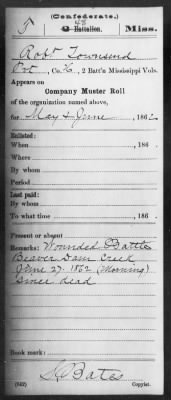 (Confederate.)
T 48 Miss.
2 Battalion.
Robt Townsend
Pvt, Co. K, 2 Batt'n Mississippi Vols.
Appears on
Company Muster Roll
of the organization named above,
for May & June, 1862
Enlisted:
When , 186 .
Where
By whom
Period
Last paid:
By whom
To what time , 186 .
Present or absent
Remarks: Wounded Battle
Beaver Dam Creek
June 27. 1862 (Morning)
Since dead
Book mark:
Bates
(642) Copyist.